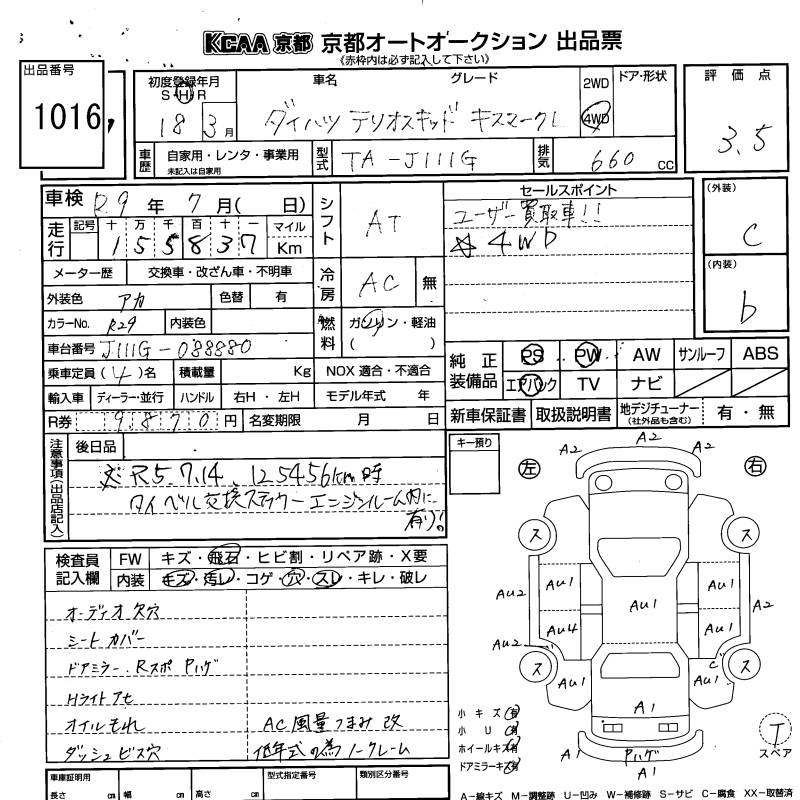 KCAA 京都 京都オートオークション 出品票
《赤枠内は必ず記入して下さい》
出品番号
1016
初度登録年月
S・H・R
18 3月
車名 グレード
ダイハツ テリオスキッド キスマークL
2WD
4WD
ドア・形状
評価点
3.5
車歴
自家用・レンタ・事業用
未記入は自家用
型式
TA-J111G
排気
660 cc
車検 R9年 7月( 日)
シフト
AT
セールスポイント
ユーザー買取車!!
☆4WD
(外装)
C
(内装)
b
走行
記号 十 万 千 百 十 一
155837
マイル
Km
メーター歴 交換車・改ざん車・不明車
冷房
AC 無
外装色 アカ 色替 有
カラーNo. R29 内装色
燃料
ガソリン・軽油
( )
車台番号 J111G-088880
乗車定員 (4)名 積載量 Kg NOX 適合・不適合
輸入車 ディーラー・並行 ハンドル 右H・左H モデル年式 年
R券 9,870円 名変期限 月 日
純正装備品
PS PW AW サンルーフ ABS
エアバック TV ナビ
新車保証書 取扱説明書 地デジチューナー (社外品も含む) 有・無
注意事項(出品店記入)
後日品
※R5.7.14. 125456km時
タイベル交換ステッカーエンジンルーム内に
有り!
キー預り
検査員記入欄
FW キズ・飛石・ヒビ割・リペア跡・X要
内装 キズ・汚レ・コゲ・穴・スレ・キレ・破レ
オーディオ欠穴
シートカバー
ドアミラー.Rスポ Pハゲ
Hライトアセ
オイルもれ
ダッシュビス穴
AC風量つまみ改
低年式の為ノークレーム
左 右
A2 A2 A2
ス ス
Au2 Au1 Au1 Au1 A2
Au2 Au4 Au1
ス C ス
Au1 Au1
A1
A1 Pハゲ A1
A1
小キズ(有)
小U(有)
ホイールキズ(有)
ドアミラーキズ(有)
T
スペア
車庫証明用
長さ cm 幅 cm 高さ cm
型式指定番号
類別区分番号
A-線キズ M-調整跡 U-凹み W-補修跡 S-サビ C-腐食 XX-取替済